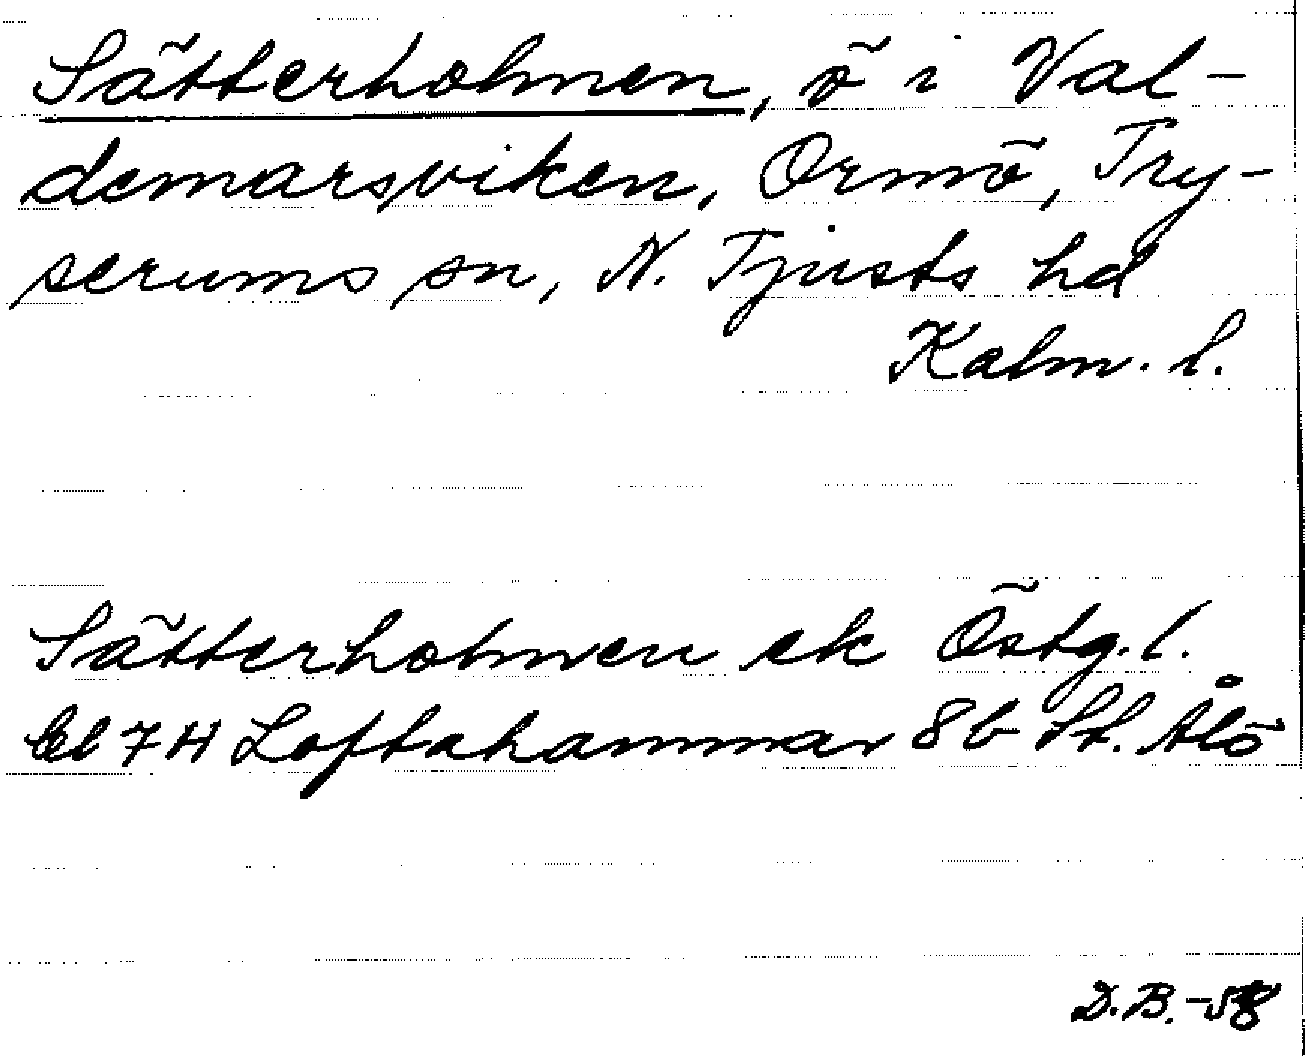 Sätterholmen, ö i Val-
demarsviken, Ormö, Try-
serums sn, N. Tjusts hd
Kalm. l.
Sätterholmen ek Östg. l.
Bl 7H Loftahammar 8b St. Ålö
D.B. -58